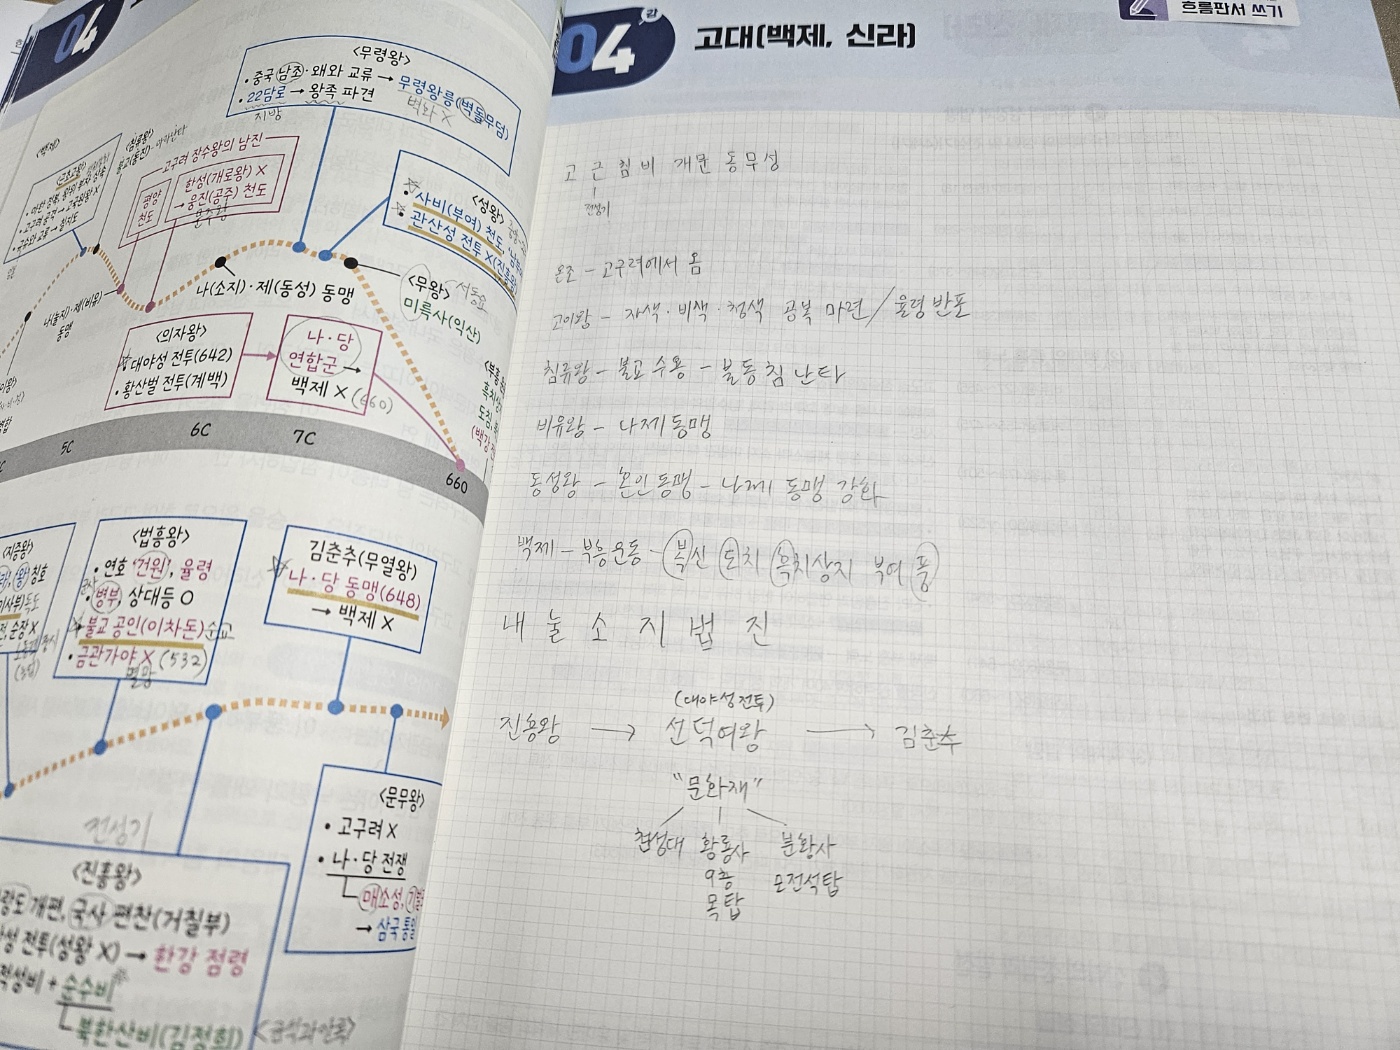 04
<무령왕>
• 중국 남조·왜와 교류 → 무령왕릉(벽돌무덤)
• 22담로 → 왕족 파견
벽화 X
지방
<백제>
<근초고왕>
<침류왕>
고구려 장수왕의 남진
평양
천도
한성(개로왕) X
→ 웅진(공주) 천도
문주왕
<성왕>
• 사비(부여) 천도
• 관산성 전투 X(진흥왕)
나(눌지)·제(비유)
동맹
나(소지)·제(동성) 동맹
<무왕> 서동요
미륵사(익산)
<의자왕>
• 대야성 전투(642)
• 황산벌 전투(계백)
나·당
연합군 →
백제 X (660)
5C
6C
7C
660
<지증왕>
<법흥왕>
• 연호 '건원', 율령
• 병부, 상대등 O
• 불교 공인(이차돈) 순교
• 금관가야 X (532)
멸망
김춘추(무열왕)
나·당 동맹(648)
→ 백제 X
<문무왕>
• 고구려 X
• 나·당 전쟁
매소성,
→ 삼국 통일
전성기
<진흥왕>
개편, 국사 편찬(거칠부)
성 전투(성왕 X) → 한강 점령
적성비 + 순수비
북한산비(김정희) <금석과안록>
04 강
고대(백제, 신라)
흐름판서 쓰기
고 근 침 비 개문 동무성
전성기
온조 - 고구려에서 옴
고이왕 - 자색·비색·청색 공복 마련 / 율령 반포
침류왕 - 불교 수용 - 불동침 난타
비유왕 - 나제동맹
동성왕 - 혼인동맹 - 나제 동맹 강화
백제 - 부흥운동 - 복신 도치 흑치상지 부여 풍
내 눌 소 지 법 진
(대야성 전투)
진흥왕 → 선덕여왕 → 김춘추
"문화재"
첨성대 황룡사 분황사
9층 모전석탑
목탑